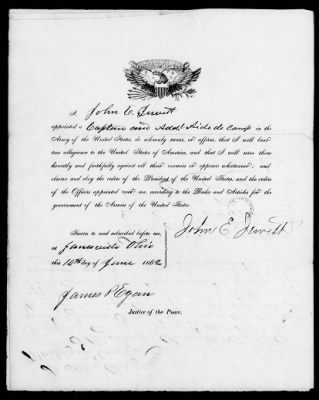 I John E Jewett
appointed a Captain and Addl Aide de Camp in the
Army of the United States, do solemnly swear, or affirm, that I will bear
true allegiance to the United States of America, and that I will serve them
honestly and faithfully against all their enemies or opposers whatsoever; and
observe and obey the orders of the President of the United States, and the orders
of the Officers appointed over me, according to the Rules and Articles for the
government of the Armies of the United States.
John E. Jewett
Sworn to and subscribed before me,
at Ohio
this 14th day of June 1862
James P Egan
Justice of the Peace.